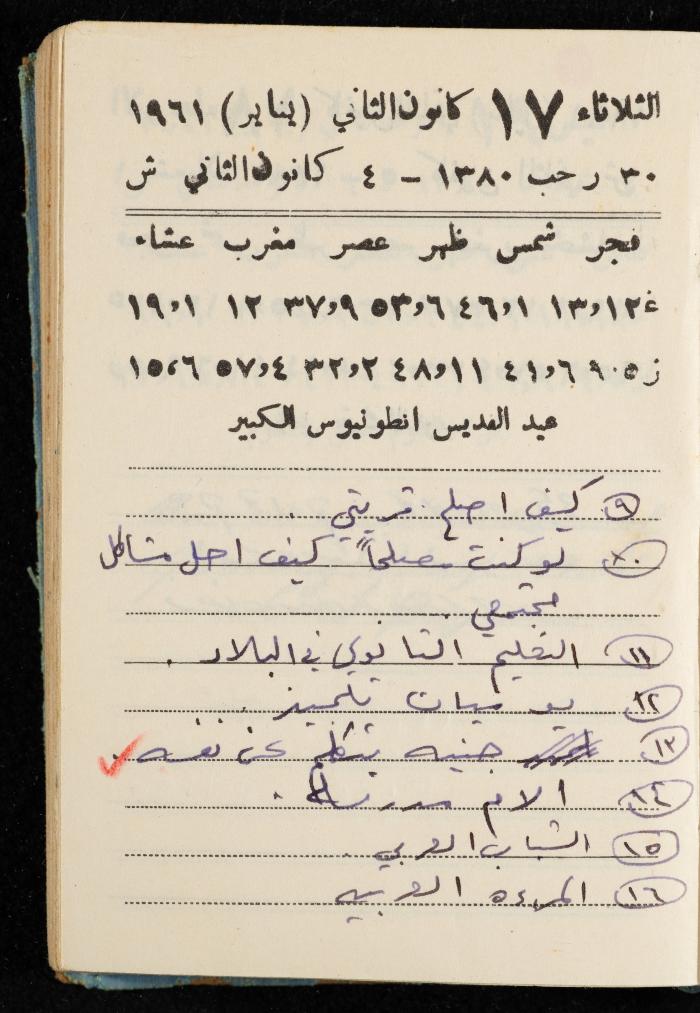 الثلاثاء ١٧ كانون الثاني (يناير) ١٩٦١
٣٠ رجب ١٣٨٠ – ٤ كانون الثاني ش
فجر شمس ظهر عصر مغرب عشاء
غ ١٢،١٣ ١،٤٦ ٦،٥٣ ٩،٣٧ ١٢ ١،١٩
ز ٥،٠٩ ٦،٤١ ١١،٤٨ ٢،٣٢ ٤،٥٧ ٦،١٥
عيد القديس انطونيوس الكبير
٩ كيف اصلح قريتي .
١٠ لو كنت مصلحاً كيف احل مشاكل
مجتمعي .
١١ التعليم الثانوي في البلاد .
١٢ يوميات تلميذ .
١٣ جنيه يتكلم عن نفسه .
١٤ الام مدرسة .
١٥ الشباب العربي
١٦ المرءه العربيه